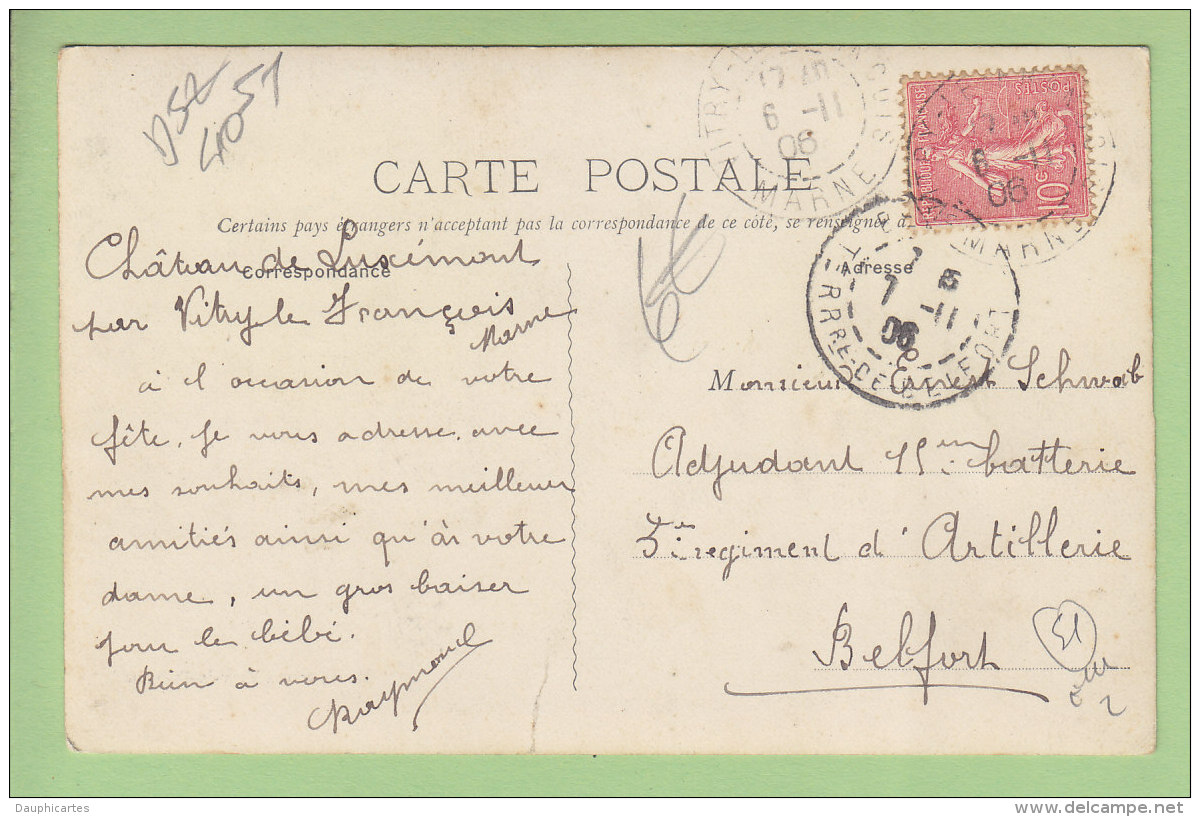 D52
4051
CARTE POSTALE
Certains pays étrangers n'acceptant pas la correspondance de ce côté, se renseigner à
Correspondance
Château de Luxémont
par Vitry le François
Marne
à l'occasion de votre
fête, je vous adresse, avec
mes souhaits, mes meilleures
amitiés ainsi qu'à votre
dame, un gros baiser
pour le bébé.
Bien à vous.
Raymond
6€
Adresse
Monsieur Ernest Schwab
Adjudant 15me batterie
5e regiment d'Artillerie
Belfort
51
VITRY
FRANÇOIS
6 -11
06
MARNE
REPUBLIQUE FRANÇAISE
POSTES
10c
6 -11
06
MARNE
7 -11
06
TERRRE-DE BELFORT
Dauphicartes
delcampe.net